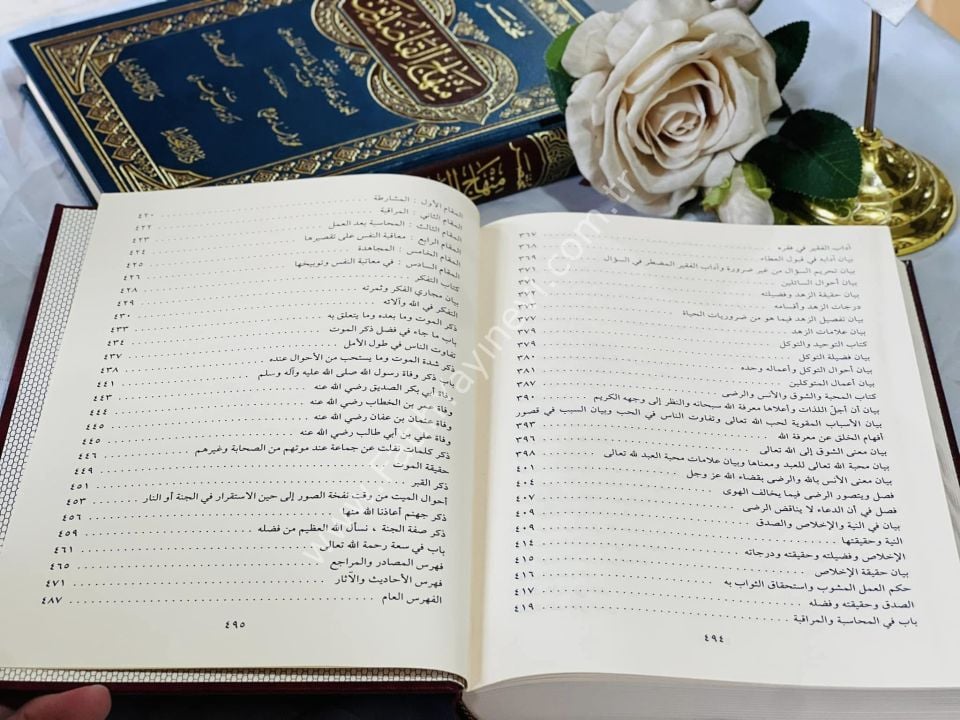 مختصر
منهاج القاصدين
منهاج
آداب الفقير في فقره ٣٦٧
بيان آدابه في قبول العطاء ٣٦٨
بيان تحريم السؤال من غير ضرورة وآداب الفقير المضطر في السؤال ٣٦٩
بيان أحوال السائلين ٣٧١
بيان حقيقة الزهد وفضيلته
درجات الزهد وأقسامه
بيان تفصيل الزهد فيما هو من ضروريات الحياة
بيان علامات الزهد ٣٧٩
كتاب التوحيد والتوكل ٣٧٩
بيان فضيلة التوكل
بيان أحوال التوكل وأعماله وحده ٣٨٠
بيان أعمال المتوكلين ٣٨١
كتاب المحبة والشوق والأنس والرضى ٣٨٧
بيان أن أجلّ اللذات وأعلاها معرفة الله سبحانه والنظر إلى وجهه الكريم ٣٩٠
بيان الأسباب المقوية لحب الله تعالى وتفاوت الناس في الحب وبيان السبب في قصور
أفهام الخلق عن معرفة الله ٣٩٣
بيان معنى الشوق إلى الله تعالى ٣٩٦
بيان محبة الله تعالى للعبد ومعناها وبيان علامات محبة العبد لله تعالى ٣٩٨
بيان معنى الأنس بالله والرضى بقضاء الله عز وجل ٤٠١
فصل ويتصور الرضى فيما يخالف الهوى ٤٠٧
فصل في أن الدعاء لا يناقض الرضى ٤٠٩
بيان في النية والإخلاص والصدق ٤٠٩
النية وحقيقتها ٤١٤
الإخلاص وفضيلته وحقيقته ودرجاته ٤١٥
بيان حقيقة الإخلاص ٤١٦
حكم العمل المشوب واستحقاق الثواب به ٤١٧
الصدق وحقيقته وفضله ٤١٩
باب في المحاسبة والمراقبة
٤٩٤
المقام الأول : المشارطة
المقام الثاني : المراقبة ٤٢٠
المقام الثالث : المحاسبة بعد العمل ٤٢٢
المقام الرابع : معاقبة النفس على تقصيرها ٤٢٣
المقام الخامس : المجاهدة ٤٢٤
المقام السادس : في معاتبة النفس وتوبيخها ٤٢٥
كتاب التفكر ٤٢٦
بيان مجاري الفكر وثمرته ٤٢٨
التفكر في الله وآلائه ٤٢٩
ذكر الموت وما بعده وما يتعلق به ٤٣٠
باب ما جاء في فضل ذكر الموت ٤٣٣
تفاوت الناس في طول الأمل ٤٣٤
ذكر شدة الموت وما يستحب من الأحوال عنده ٤٣٧
باب ذكر وفاة رسول الله صلى الله عليه وآله وسلم ٤٣٨
وفاة أبي بكر الصديق رضي الله عنه ٤٤١
وفاة عمر بن الخطاب رضي الله عنه ٤٤٣
وفاة عثمان بن عفان رضي الله عنه ٤٤٤
وفاة علي بن أبي طالب رضي الله عنه ٤٤٥
ذكر كلمات نقلت عن جماعة عند موتهم من الصحابة وغيرهم ٤٤٥
حقيقة الموت ٤٤٦
ذكر القبر ٤٤٩
أحوال الميت من وقت نفخة الصور إلى حين الاستقرار في الجنة أو النار ٤٥١
ذكر جهنم أعاذنا الله منها ٤٥٣
ذكر صفة الجنة ، نسأل الله العظيم من فضله ٤٥٦
باب في سعة رحمة الله تعالى ٤٥٩
فهرس المصادر والمراجع ٤٦١
فهرس الأحاديث والآثار ٤٦٥
الفهرس العام ٤٧١
٤٨٧
٤٩٥